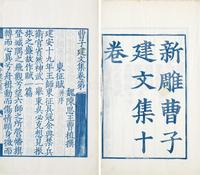 新雕曹子
建文集十
卷
曹子建文集卷第一
魏陳思王曹植撰
東征賦并序
建安十九年王師東征吳寇余典禁兵
衛宫省然神武一舉東夷必克想見振
旅之盛故作賦一篇
登城隅之飛觀兮望六師之所營幡旗
轉而心異兮舟楫動而傷情顧身微而